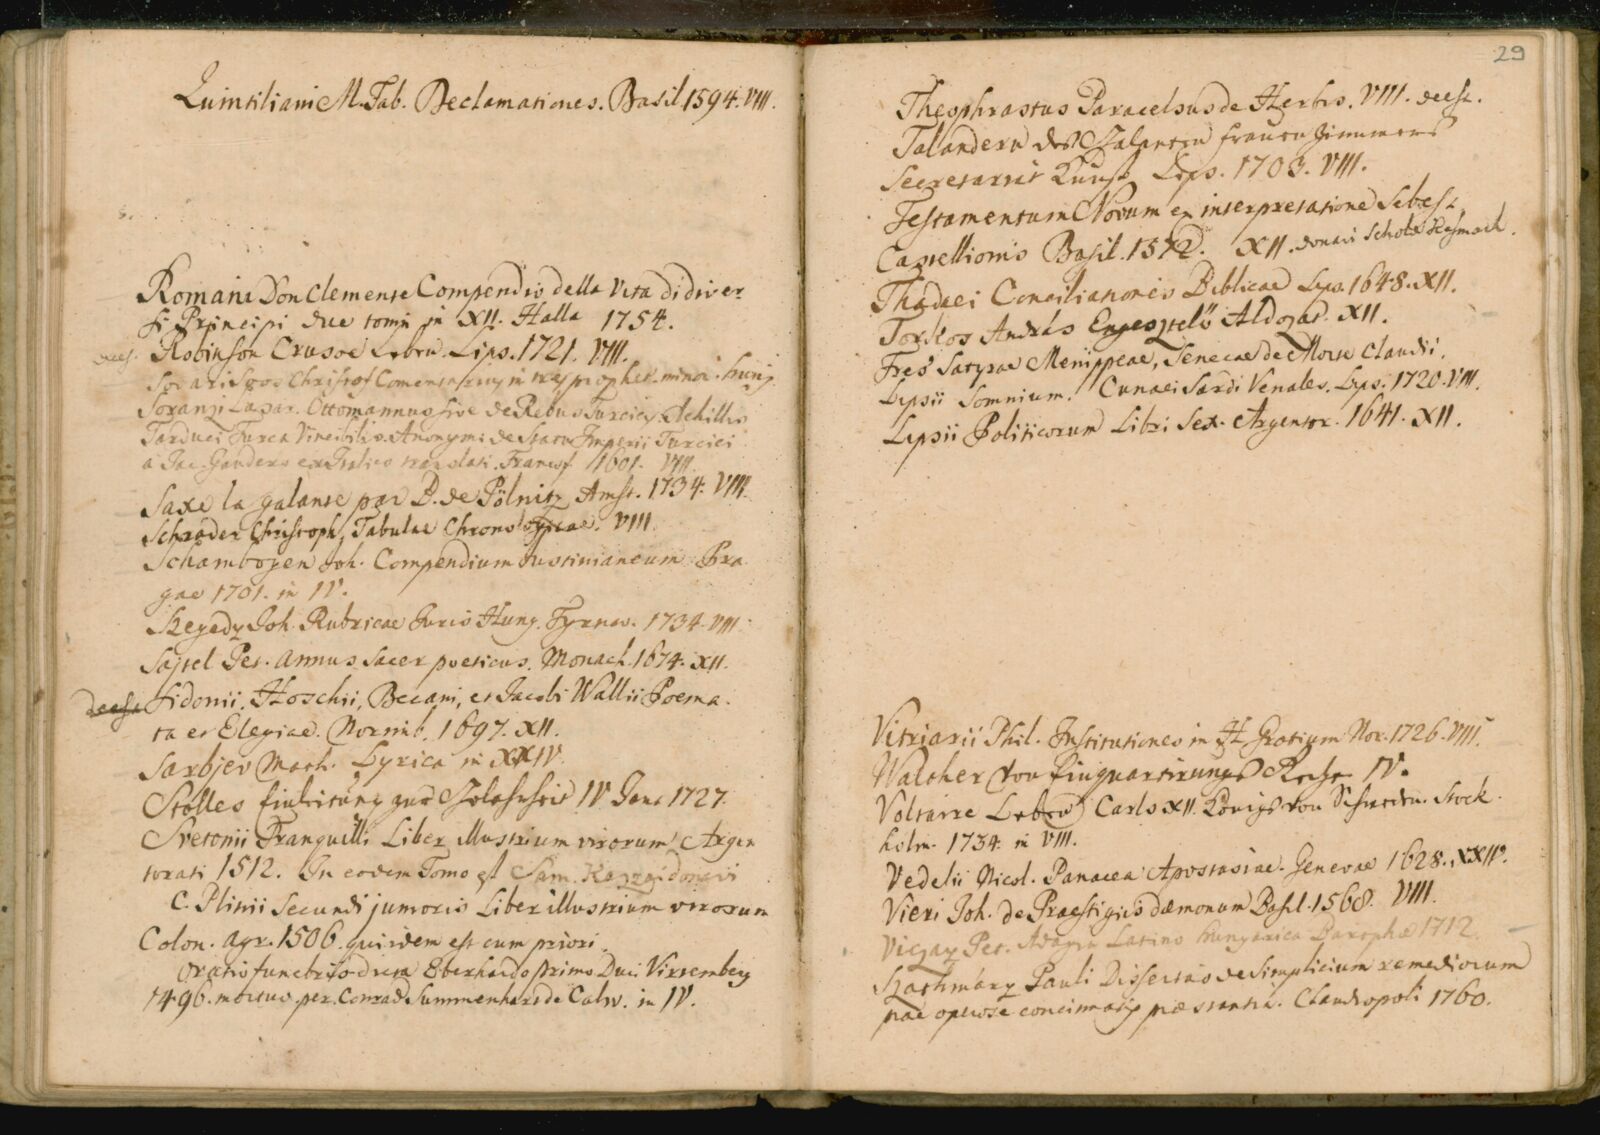 Quintiliani M. Fab. Declamationes. Basil 1594. VIII.
Romani Don Clemente Compendio della Vita di diver
si Principi due tomi in XII. Halla 1754.
deest. Robinson Crusoe Leben. Lips. 1721. VIII.
Christof Comentarius in tres prophet. minor. hung.
Soranzi Lazar. Ottomannus sive de Rebus Turcicis Achillis
Tarduci Turca Vincibilis. Anonymi de Statu Imperii Turcici
a Jac. Geudero ex Italico translati. Francof. 1601. VIII.
Saxe la galante par B. de Pölnitz Amst. 1734. VIII.
Schrader Christoph, Tabulae Chronologicae. VIII.
Schambogen Joh. Compendium Justinianeum Pra
gae 1701. in IV.
Szegedy Joh. Rubricae Juris Hung. Tyrnav. 1734. VIII.
Pet. Annus sacer poeticus. Monach. 1674. XII.
deest Sidonii, Hoschii, Becani, et Jacobi Wallii Poema
ta et Elegiae. Norimb. 1697. XII.
Sarbjev Math. Lyrica in XXIV.
Stolles Einleitung zur IV Jena 1727.
Svetonii Tranquilli Liber illustrium virorum Argen
torati 1512. In eodem Tomo est Sam. donavi
C. Plinii Secundi junioris Liber illustrium virorum
Colon. agr. 1506. quidem est cum priori.
Oratio funebris dicta Eberhardo primo Duci Virtemberg
1496. mortuo per Conrad. Summenhart de Calw. in IV.
29
Theophrastus Paracelsus de Herbis. VIII. deest.
Talandern des Galanten Frauen Zimmers
Secretariat Kunst Lips. 1703. VIII.
Testamentum Novum ex interpretatione Sebast.
Castellionis Basil. 1572. XII. donavi Schola
Thadaei Conciliationes Biblicae Lips. 1648. XII.
Torkos András Engesztelő Áldozat. XII.
Tres Satyrae Menippeae, Senecae de Morte Claudii.
Lipsii Somnium. Cunaei Sardi Venales. Lips. 1720. VIII.
Lipsii Politicorum Libri Sex. Argentor. 1641. XII.
Vitriarii Phil. Institutiones in H. Grotium Nor. 1726. VIII.
Walther von Einquartirungs Recht IV.
Voltaire Leben Carls XII. Königs von Schweden. Stock
holm. 1734. in VIII.
Vedelii Nicol. Panacea Apostasiae. Genevae 1628. XXIV.
Vieri Joh. de Praestigiis dæmonum Basil. 1568. VIII.
Pet. Adagia Latino hungarica Bartphæ 1712.
Pauli Dissertatio de simplicium remediorum
prae operose concinnatis præstantia. Claudiopoli 1760.